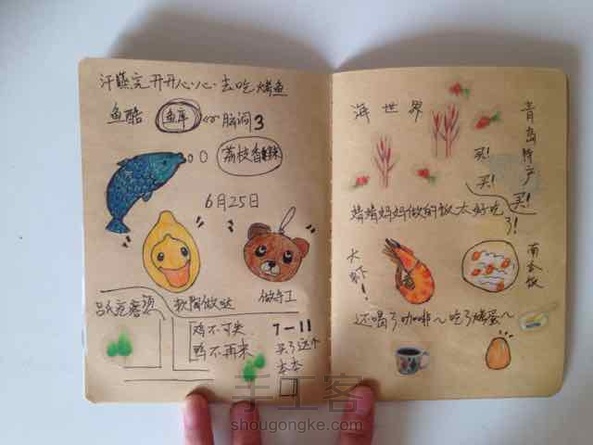 汗蒸完开开心心去吃烤鱼
鱼酷
鱼库
脑洞3
荔枝香辣
6月25日
软陶做哒
做手工
鸡不可失
鸭不再来
7-11
买了这个
本本
海世界
青岛特产
买!
买!
买!
妈妈做的饭太好吃了!
大虾!
南瓜饭
还喝了咖啡~吃了烤蛋~
手工客
shougongke.com